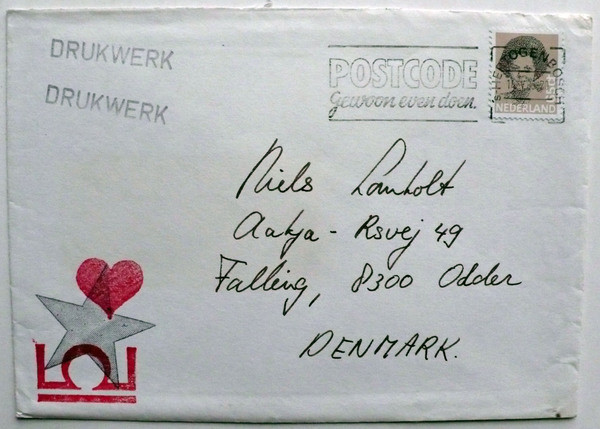 DRUKWERK
DRUKWERK
POSTCODE
Gewoon even doen.
'S-HERTOGENBOSCH
NEDERLAND
Niels Lomholt
Aakja - Rsvej 49
Falling, 8300 Odder
DENMARK.